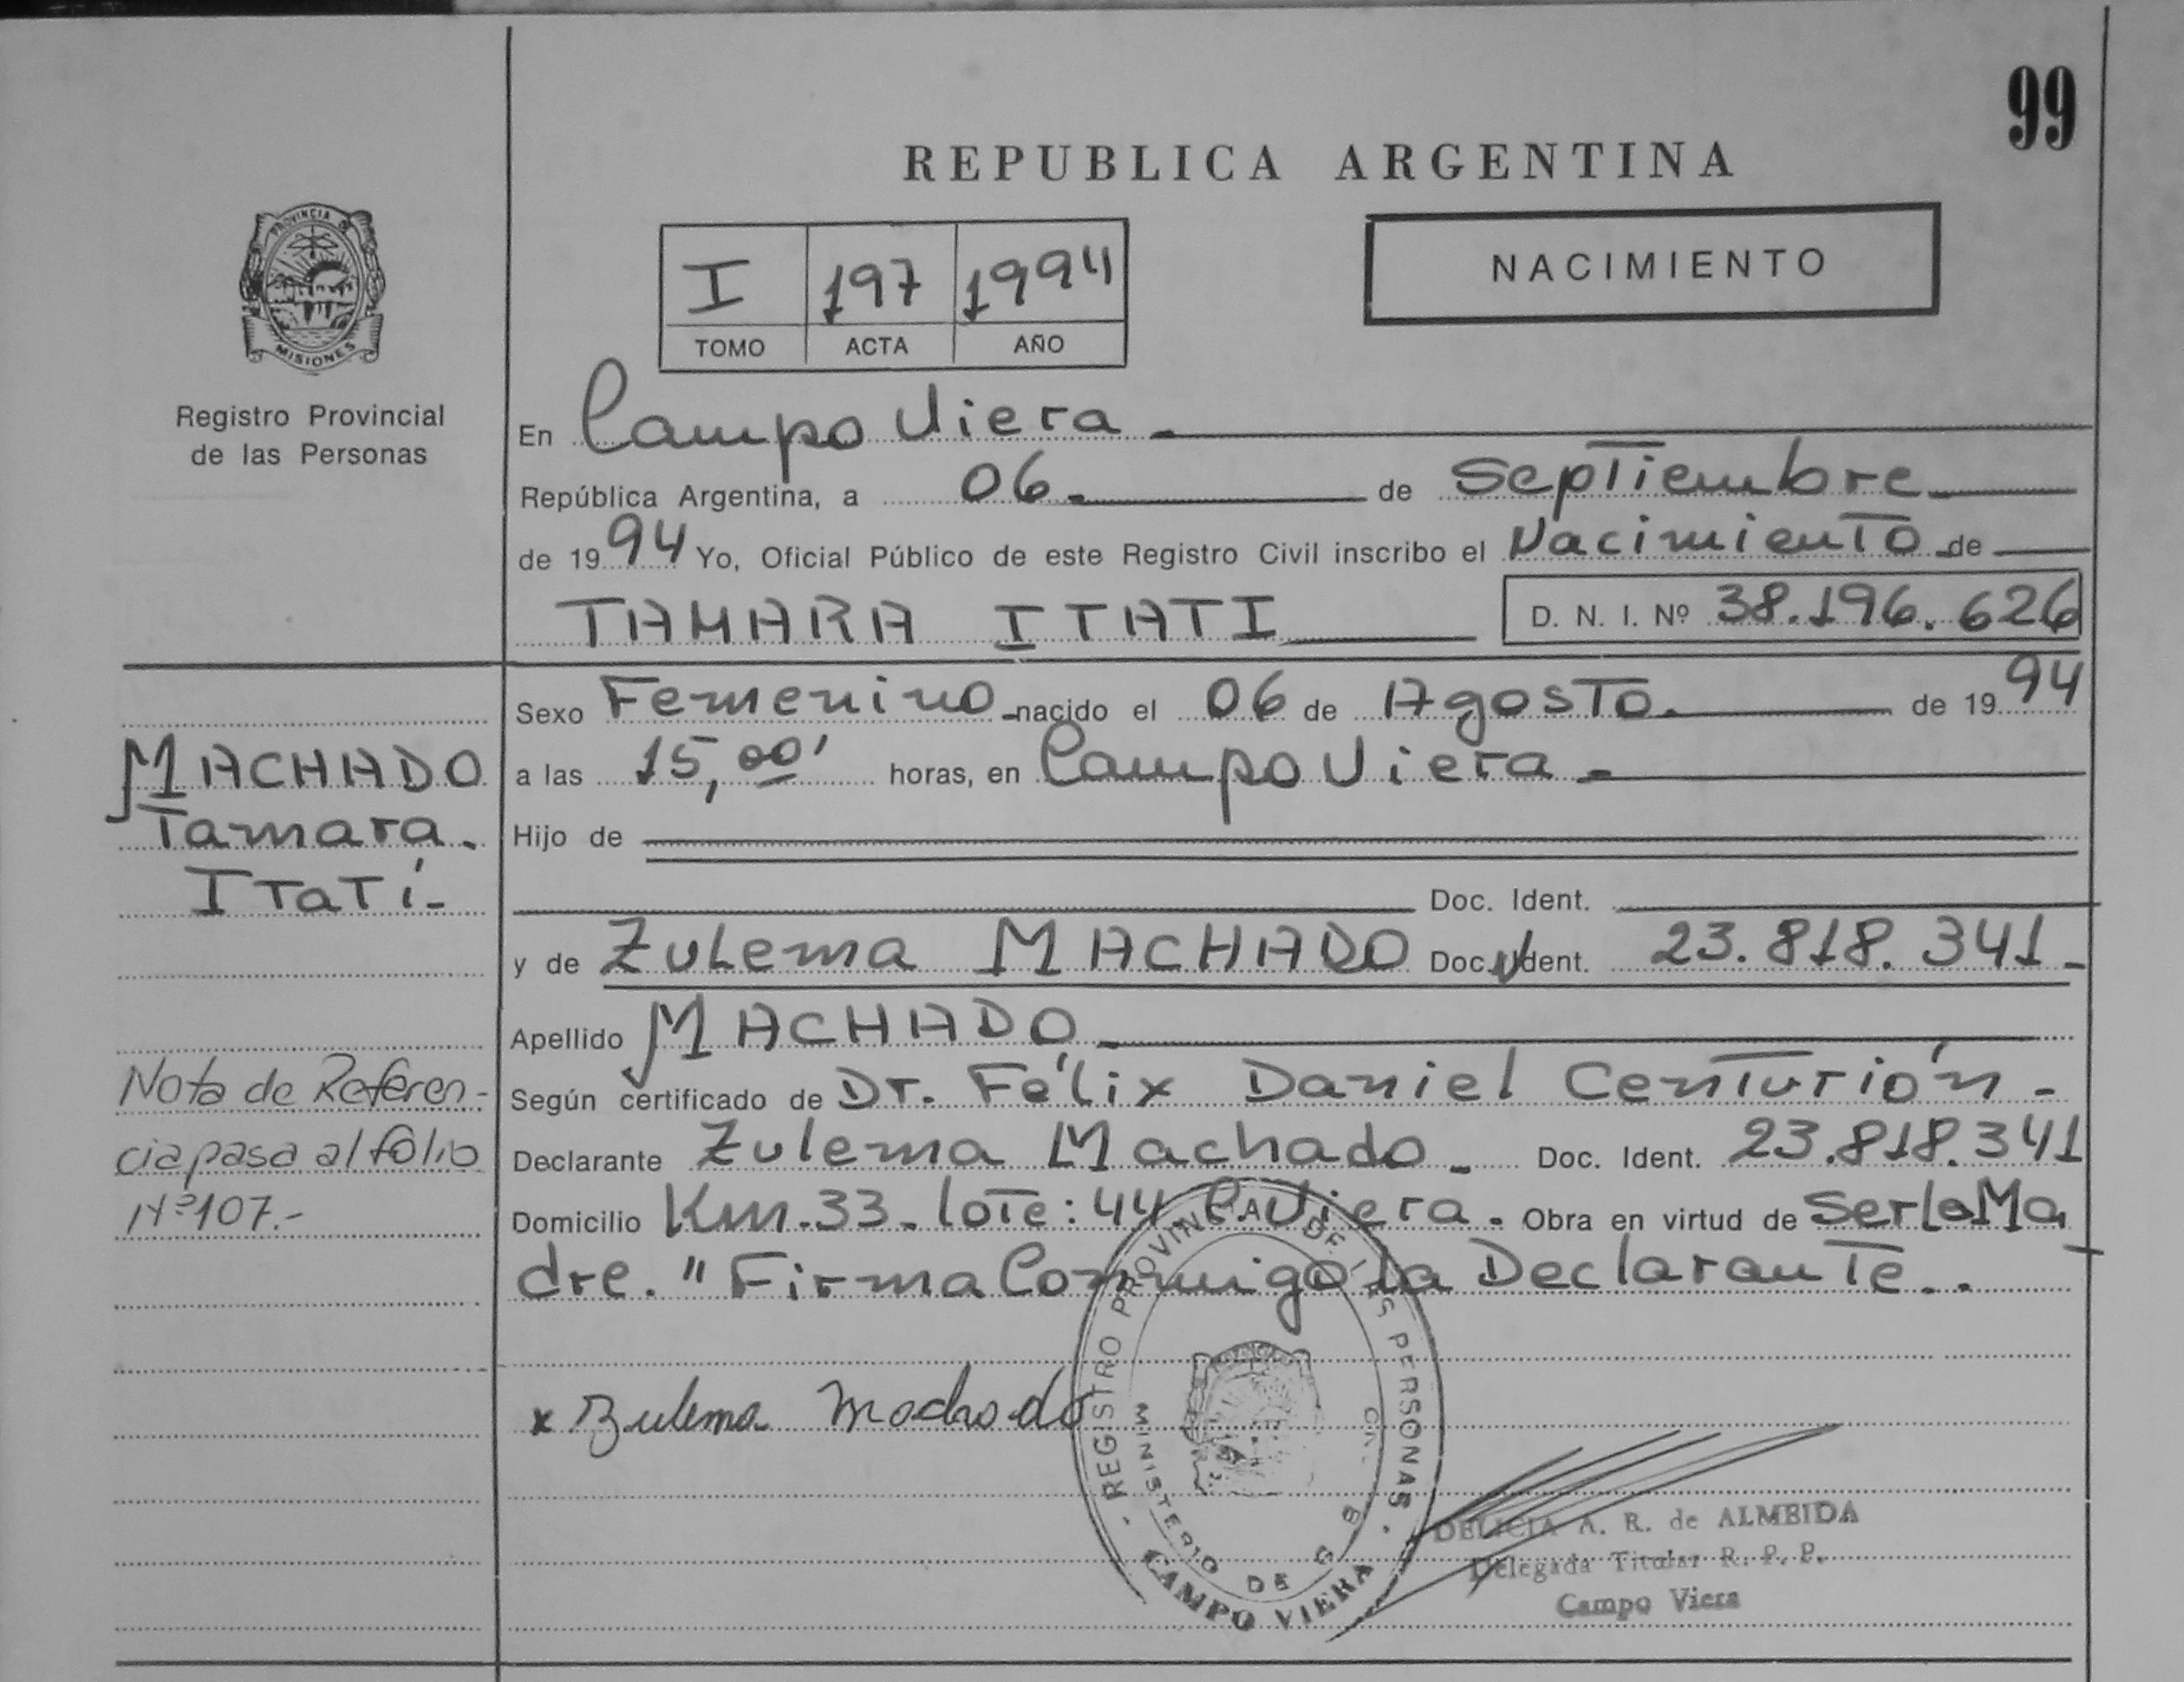 99
REPUBLICA ARGENTINA
PROVINCIA DE
MISIONES
Registro Provincial
de las Personas
I 197 1994
TOMO ACTA AÑO
NACIMIENTO
En Campo Viera -
República Argentina, a 06. de Septiembre
de 1994 Yo, Oficial Público de este Registro Civil inscribo el Nacimiento de
TAMARA ITATI D. N. I. Nº 38.196.626
Sexo Femenino nacido el 06 de Agosto. de 1994
a las 15,00' horas, en Campo Viera -
Hijo de
Doc. Ident.
y de Zulema MACHADO Doc. Ident. 23.818.341-
Apellido MACHADO
Según certificado de Dr. Félix Daniel Centurión-
Declarante Zulema Machado - Doc. Ident. 23.818.341
Domicilio Km.33. lote: 44. C. Viera. Obra en virtud de Ser la Ma
dre. " Firma Conmigo la Declarante..
MACHADO
Tamara.
Itatí-
Nota de Referen-
cia pasa al folio
Nº 107.-
x Zulema Machado
REGISTRO PROVINCIAL DE LAS PERSONAS
MINISTERIO DE G
CAMPO VIERA
DELICIA A. R. de ALMEIDA
Delegada Titular R. P. P.
Campo Viera